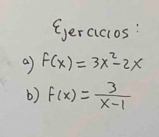 Ejercicios:
a) f(x) = 3x² - 2x
b) f(x) = 3/(x-1)